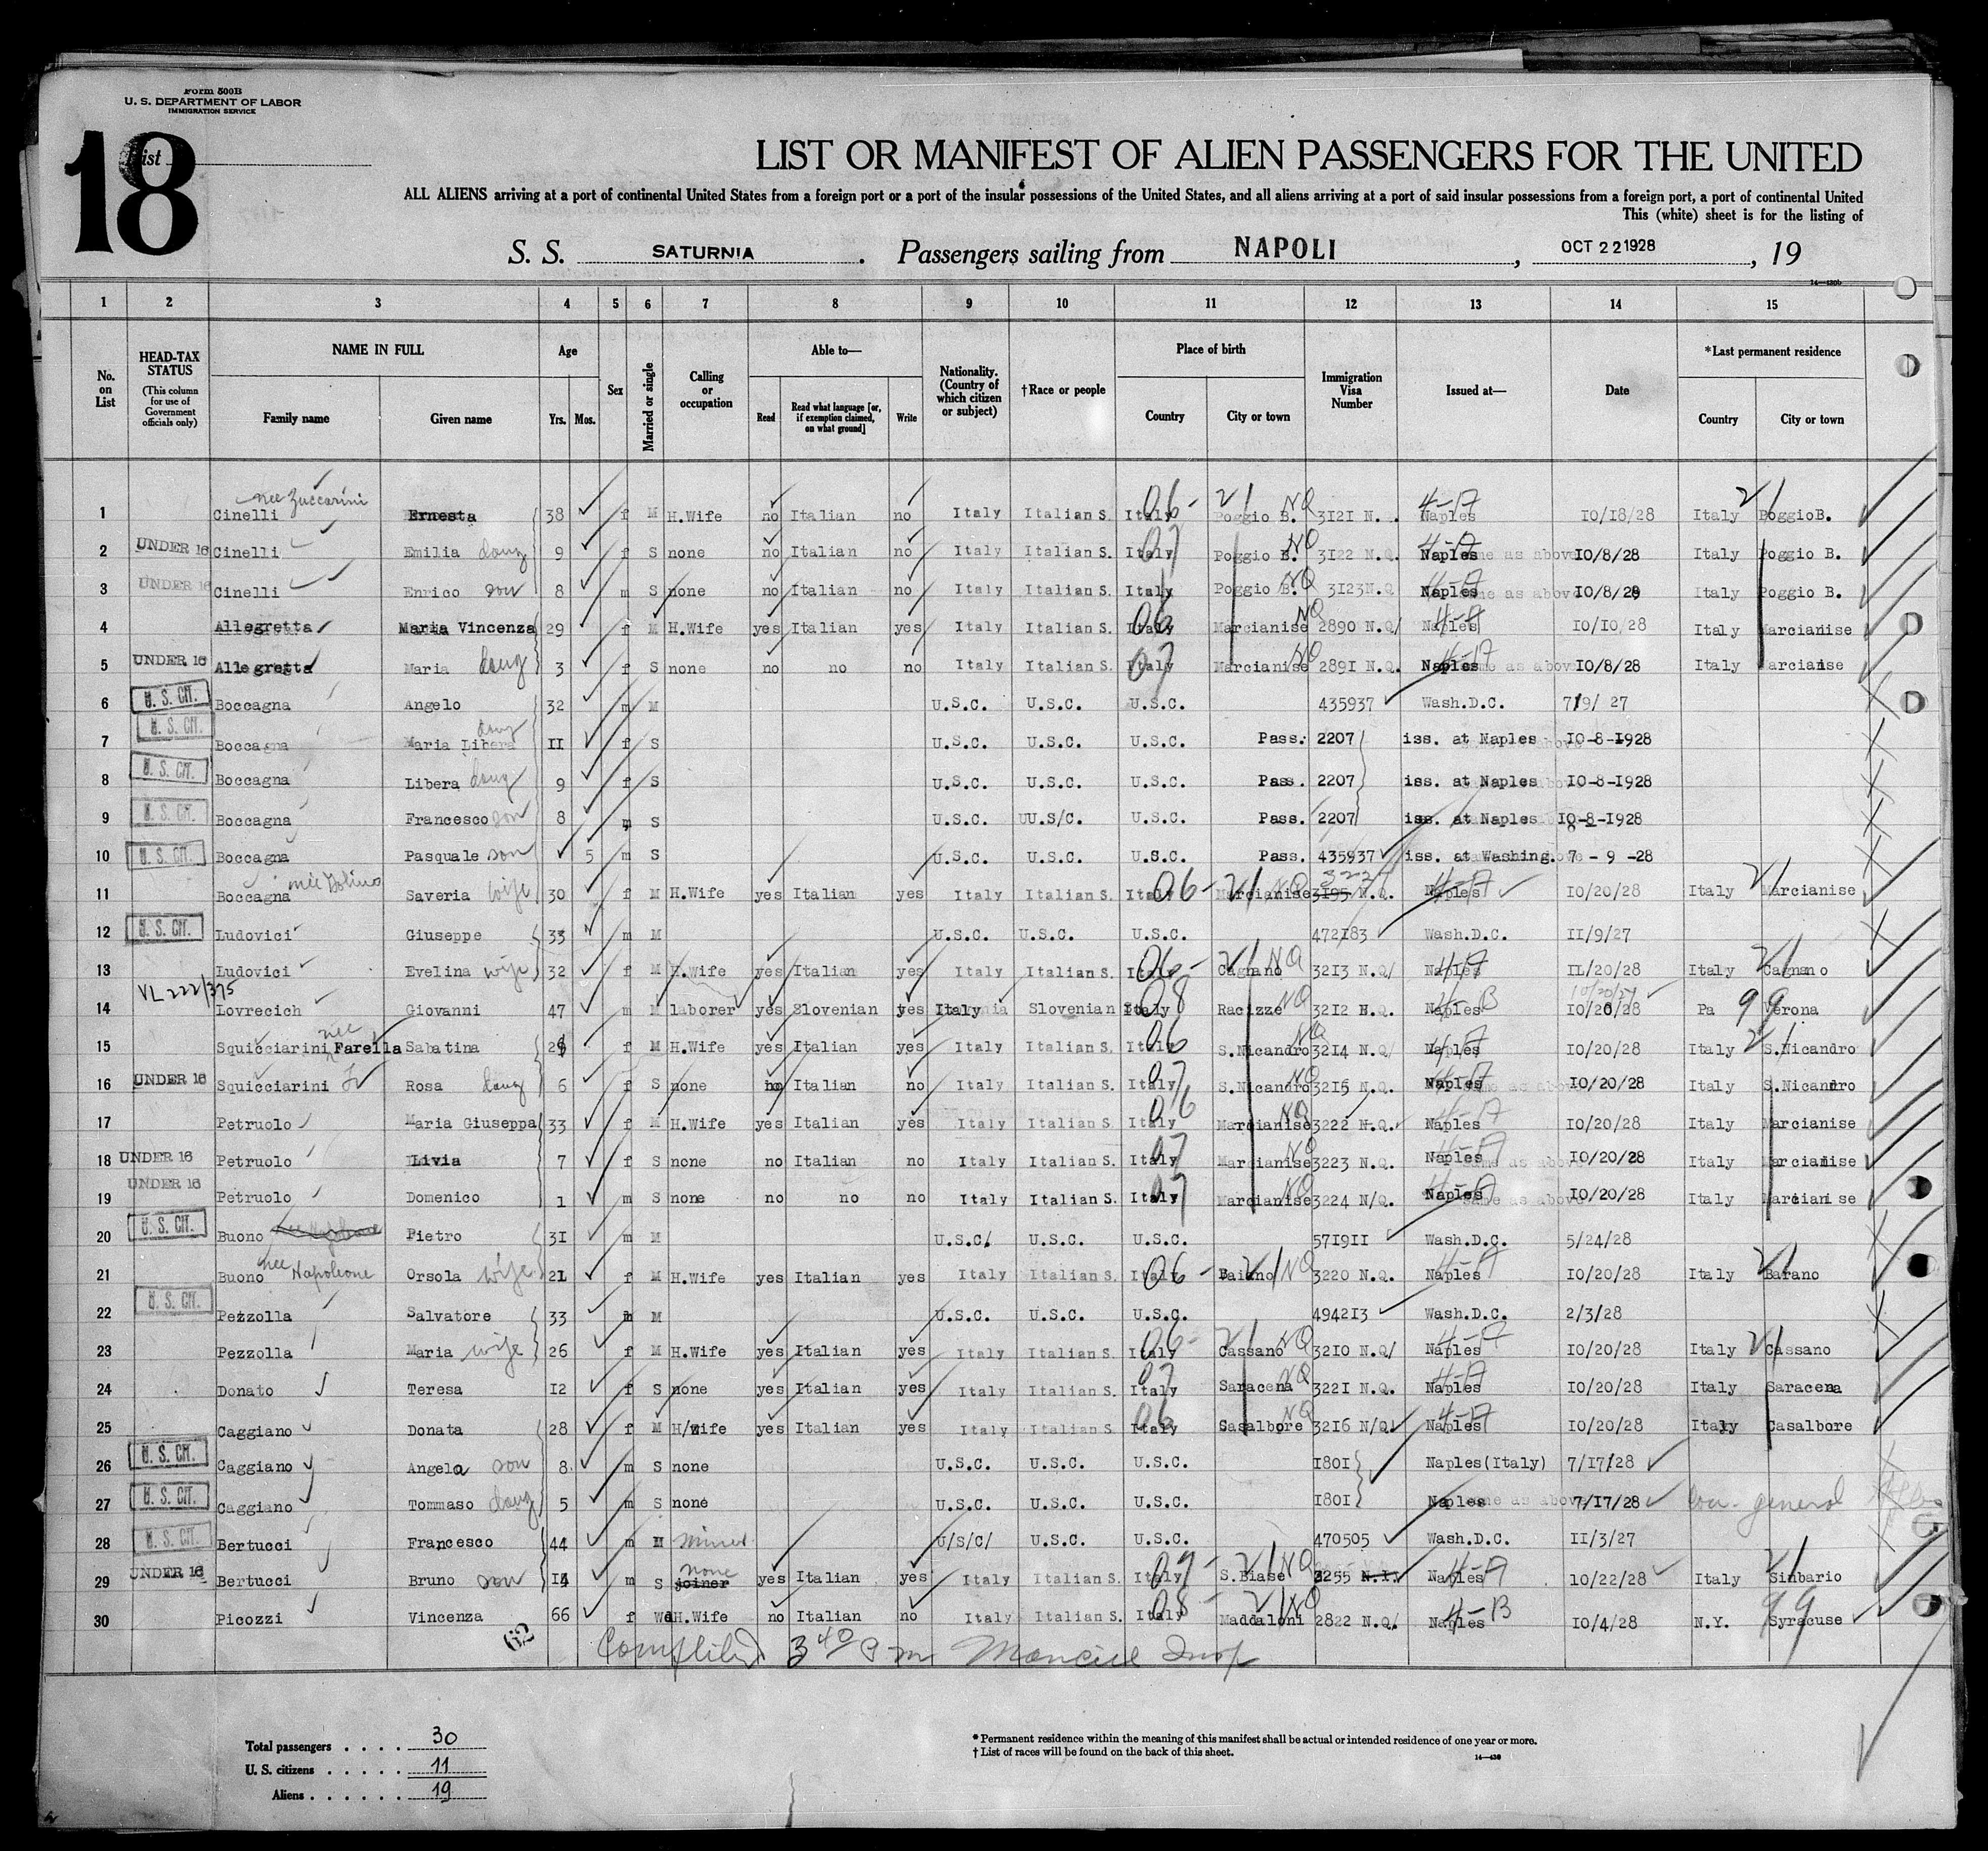 Form 500B
U. S. DEPARTMENT OF LABOR
IMMIGRATION SERVICE
18
List
LIST OR MANIFEST OF ALIEN PASSENGERS FOR THE UNITED
ALL ALIENS arriving at a port of continental United States from a foreign port or a port of the insular possessions of the United States, and all aliens arriving at a port of said insular possessions from a foreign port, a port of continental United
This (white) sheet is for the listing of
S. S. SATURNIA . Passengers sailing from NAPOLI , OCT 22 1928 , 19
1 2 3 4 5 6 7 8 9 10 11 12 13 14 15
No. on List
HEAD-TAX STATUS (This column for use of Government officials only)
NAME IN FULL Family name Given name
Age Yrs. Mos.
Sex
Married or single
Calling or occupation
Able to— Read Read what language [or, if exemption claimed, on what ground] Write
Nationality. (Country of which citizen or subject)
†Race or people
Place of birth Country City or town
Immigration Visa Number
Issued at—
Date
*Last permanent residence Country City or town
nee Zuccarini
1 Cinelli Ernesta 38 f M H.Wife no Italian no Italy Italian S. Italy 06- 21 Poggio B. NQ 3121 N. Naples 4-17 10/18/28 Italy 21 PoggioB.
2 UNDER 16 Cinelli Emilia daug 9 f S none no Italian no Italy Italian S. Italy 07 Poggio B. NQ 3122 N.Q. Naples 4-17 10/8/28 Italy Poggio B.
3 UNDER 16 Cinelli Enrico son 8 m S none no Italian no Italy Italian S. Italy Poggio B. NQ 3123N.Q Naples 4-17 10/8/28 Italy Poggio B.
4 Allegretta Maria Vincenza 29 f M H.Wife yes Italian yes Italy Italian S. Italy 06 Marcianise NQ 2890 N.Q/ Naples 10/10/28 Italy Marcianise
5 UNDER 16 Allegretta Maria daug 3 f S none no no no Italy Italian S. Italy 07 Marcianise NQ 2891 N.Q. Naples 4-17 10/8/28 Italy Marcianise
6 U. S. CIT. Boccagna Angelo 32 m M U.S.C. U.S.C. U.S.C. 435937 Wash.D.C. 7/9/ 27
7 U. S. CIT. Boccagna Maria Libera daug 11 f S U.S.C. U.S.C. U.S.C. Pass. 2207 iss. at Naples 10-8-1928
8 U. S. CIT. Boccagna Libera daug 9 f S U.S.C. U.S.C. U.S.C. Pass. 2207 iss. at Naples 10-8-1928
9 U. S. CIT. Boccagna Francesco son 8 m S U.S.C. UU.S/C. U.S.C. Pass. 2207 iss. at Naples 10-8-1928
10 U. S. CIT. Boccagna Pasquale son 5 m S U.S.C. U.S.C. U.S.C. Pass. 435937 iss. at Washing. 7 - 9 -28
11 Boccagna Saveria wife 30 f M H.Wife yes Italian yes Italy Italian S. Italy 06- 21 Marcianise 3195 N.Q. Naples 10/20/28 Italy 21 Marcianise
12 U. S. CIT. Ludovici Giuseppe 33 m M U.S.C. U.S.C. U.S.C. 472183 Wash.D.C. 11/9/27
13 Ludovici Evelina wife 32 f M H.Wife yes Italian yes Italy Italian S. Italy 06- 21 Cagnano NQ 3213 N.Q/ Naples 10/20/28 Italy 21 Cagnano
VL 222/375
14 Lovrecich Giovanni 47 m M laborer yes Slovenian yes Italy Slovenian Italy 08 Racizze NQ 3212 N.Q. Naples 4-B 10/20/28 Pa 99 Verona
15 Squicciarini nee Farella Sabatina f M H.Wife yes Italian yes Italy Italian S. Italy 06 S.Nicandro NQ 3214 N.Q/ Naples 10/20/28 Italy 21 S.Nicandro
16 UNDER 16 Squicciarini Rosa daug 6 f S none no Italian no Italy Italian S. Italy 07 S.Nicandro NQ 3215 N.Q. Naples 10/20/28 Italy S.Nicandro
17 Petruolo Maria Giuseppa 33 f M H.Wife yes Italian yes Italy Italian S. Italy 06 Marcianise NQ 3222 N.Q. Naples 4-17 10/20/28 Italy Marcianise
18 UNDER 16 Petruolo Livia 7 f S none no Italian no Italy Italian S. Italy 07 Marcianise NQ 3223 N.Q. Naples 4-17 10/20/28 Italy Marcianise
19 UNDER 16 Petruolo Domenico 1 m S none no no no Italy Italian S. Italy 07 Marcianise NQ 3224 N/Q. Naples 10/20/28 Italy Marciani se
20 U. S. CIT. Buono Pietro 31 m M U.S.C/ U.S.C. U.S.C. 571911 Wash.D.C. 5/24/28
21 Buono nee Napoleone Orsola wife 21 f M H.Wife yes Italian yes Italy Italian S. Italy 06- 21 NQ 3220 N.Q. Naples 10/20/28 Italy 21 Barano
22 U. S. CIT. Pezzolla Salvatore 33 m M U.S.C. U.S.C. U.S.C. 494213 Wash.D.C. 2/3/28
23 Pezzolla Maria wife 26 f M H.Wife yes Italian yes Italy Italian S. Italy 06- 21 Cassano NQ 3210 N.Q/ Naples 10/20/28 Italy 21 Cassano
24 Donato Teresa 12 f S none yes Italian yes Italy Italian S. Italy 07 Saracena NQ 3221 N.Q. Naples 4-17 10/20/28 Italy Saracena
25 Caggiano Donata 28 f M H/wife yes Italian yes Italy Italian S. Italy 06 Casalbore NQ 3216 N/Q/ Naples 4-17 10/20/28 Italy Casalbore
26 U. S. CIT. Caggiano Angelo son 8 m S none U.S.C. U.S.C. U.S.C. 1801 Naples(Italy) 7/17/28
27 U. S. CIT. Caggiano Tommaso daug 5 m S none U.S.C. U.S.C. U.S.C. 1801 Naples 7/17/28 general
28 U. S. CIT. Bertucci Francesco 44 m M miner U/S/C/ U.S.C. U.S.C. 470505 Wash.D.C. 11/3/27
29 UNDER 16 Bertucci Bruno son 14 m S joiner none yes Italian yes Italy Italian S. Italy 09- 21 S.Biase NQ 3255 N.I. Naples 10/22/28 Italy 21 Simbario
30 Picozzi Vincenza 66 f Wd H.Wife no Italian no Italy Italian S. Italy 08- 21 Maddaloni NQ 2822 N.Q/. Naples 4-B 10/4/28 N.Y. 99 Syracuse
62
3 40 Pm
Total passengers . . . . 30
U. S. citizens . . . . . 11
Aliens . . . . . . 19
* Permanent residence within the meaning of this manifest shall be actual or intended residence of one year or more.
† List of races will be found on the back of this sheet.
14—430